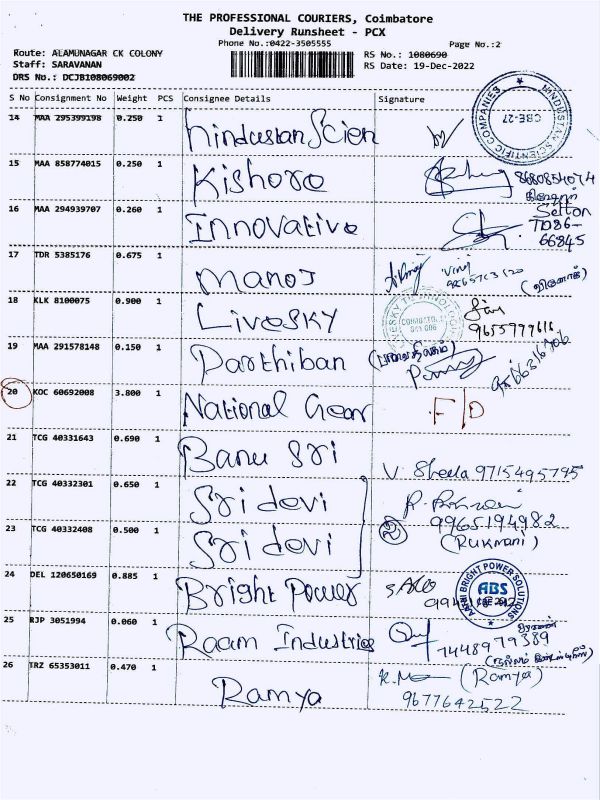 THE PROFESSIONAL COURIERS, Coimbatore
Delivery Runsheet - PCX
Phone No.:0422-3505555 Page No.:2
Route: ALAMUNAGAR CK COLONY RS No.: 1080690
Staff: SARAVANAN RS Date: 19-Dec-2022
DRS No.: DCJB108069002
S No Consignment No Weight PCS Consignee Details Signature
14 MAA 295399198 0.250 1 Hindustan Scien
HINDUSTAN SCIENTIFIC COMPANIES CBE-27
15 MAA 858774015 0.250 1 Kishore 8680854074
16 MAA 294939707 0.260 1 Innovative Selton
TD86-
66845
17 TDR 5385176 0.675 1 Manoj Vinoj
18 KLK 8100075 0.900 1 LiveSky
9655977616
19 MAA 291578148 0.150 1 Parthiban
20 KOC 60692008 3.800 1 National Gear F/D
21 TCG 40331643 0.690 1 Banu Sri V. Sheela 9715495795
22 TCG 40332301 0.650 1 Sri devi
9965194982
23 TCG 40332408 0.500 1 Sri devi 2 (Rukmani)
24 DEL 120650169 0.885 1 Bright Power
BRIGHT POWER SOLUTIONS ABS
25 RJP 3051994 0.060 1 Raam Industries 7448979389
26 TRZ 65353011 0.470 1 Ramya (Ramya)
9677642522